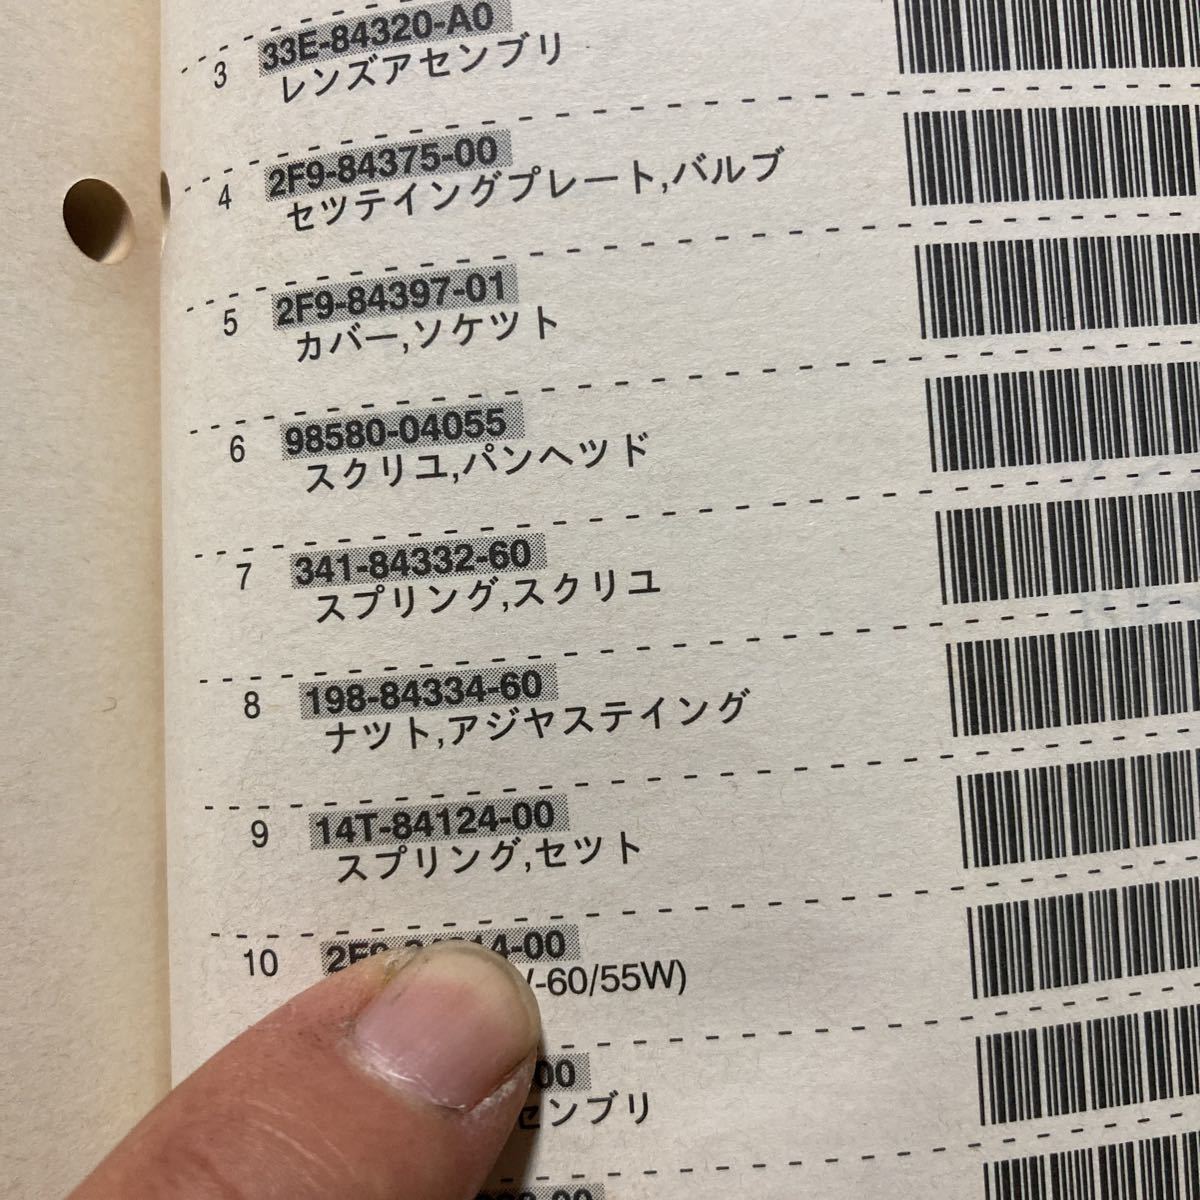 3 33E-84320-A0
レンズアセンブリ
4 2F9-84375-00
セツテイングプレート,バルブ
5 2F9-84397-01
カバー,ソケツト
6 98580-04055
スクリユ,パンヘツド
7 341-84332-60
スプリング,スクリユ
8 198-84334-60
ナツト,アジヤステイング
9 14T-84124-00
スプリング,セツト
10
-60/55W)
00
センブリ